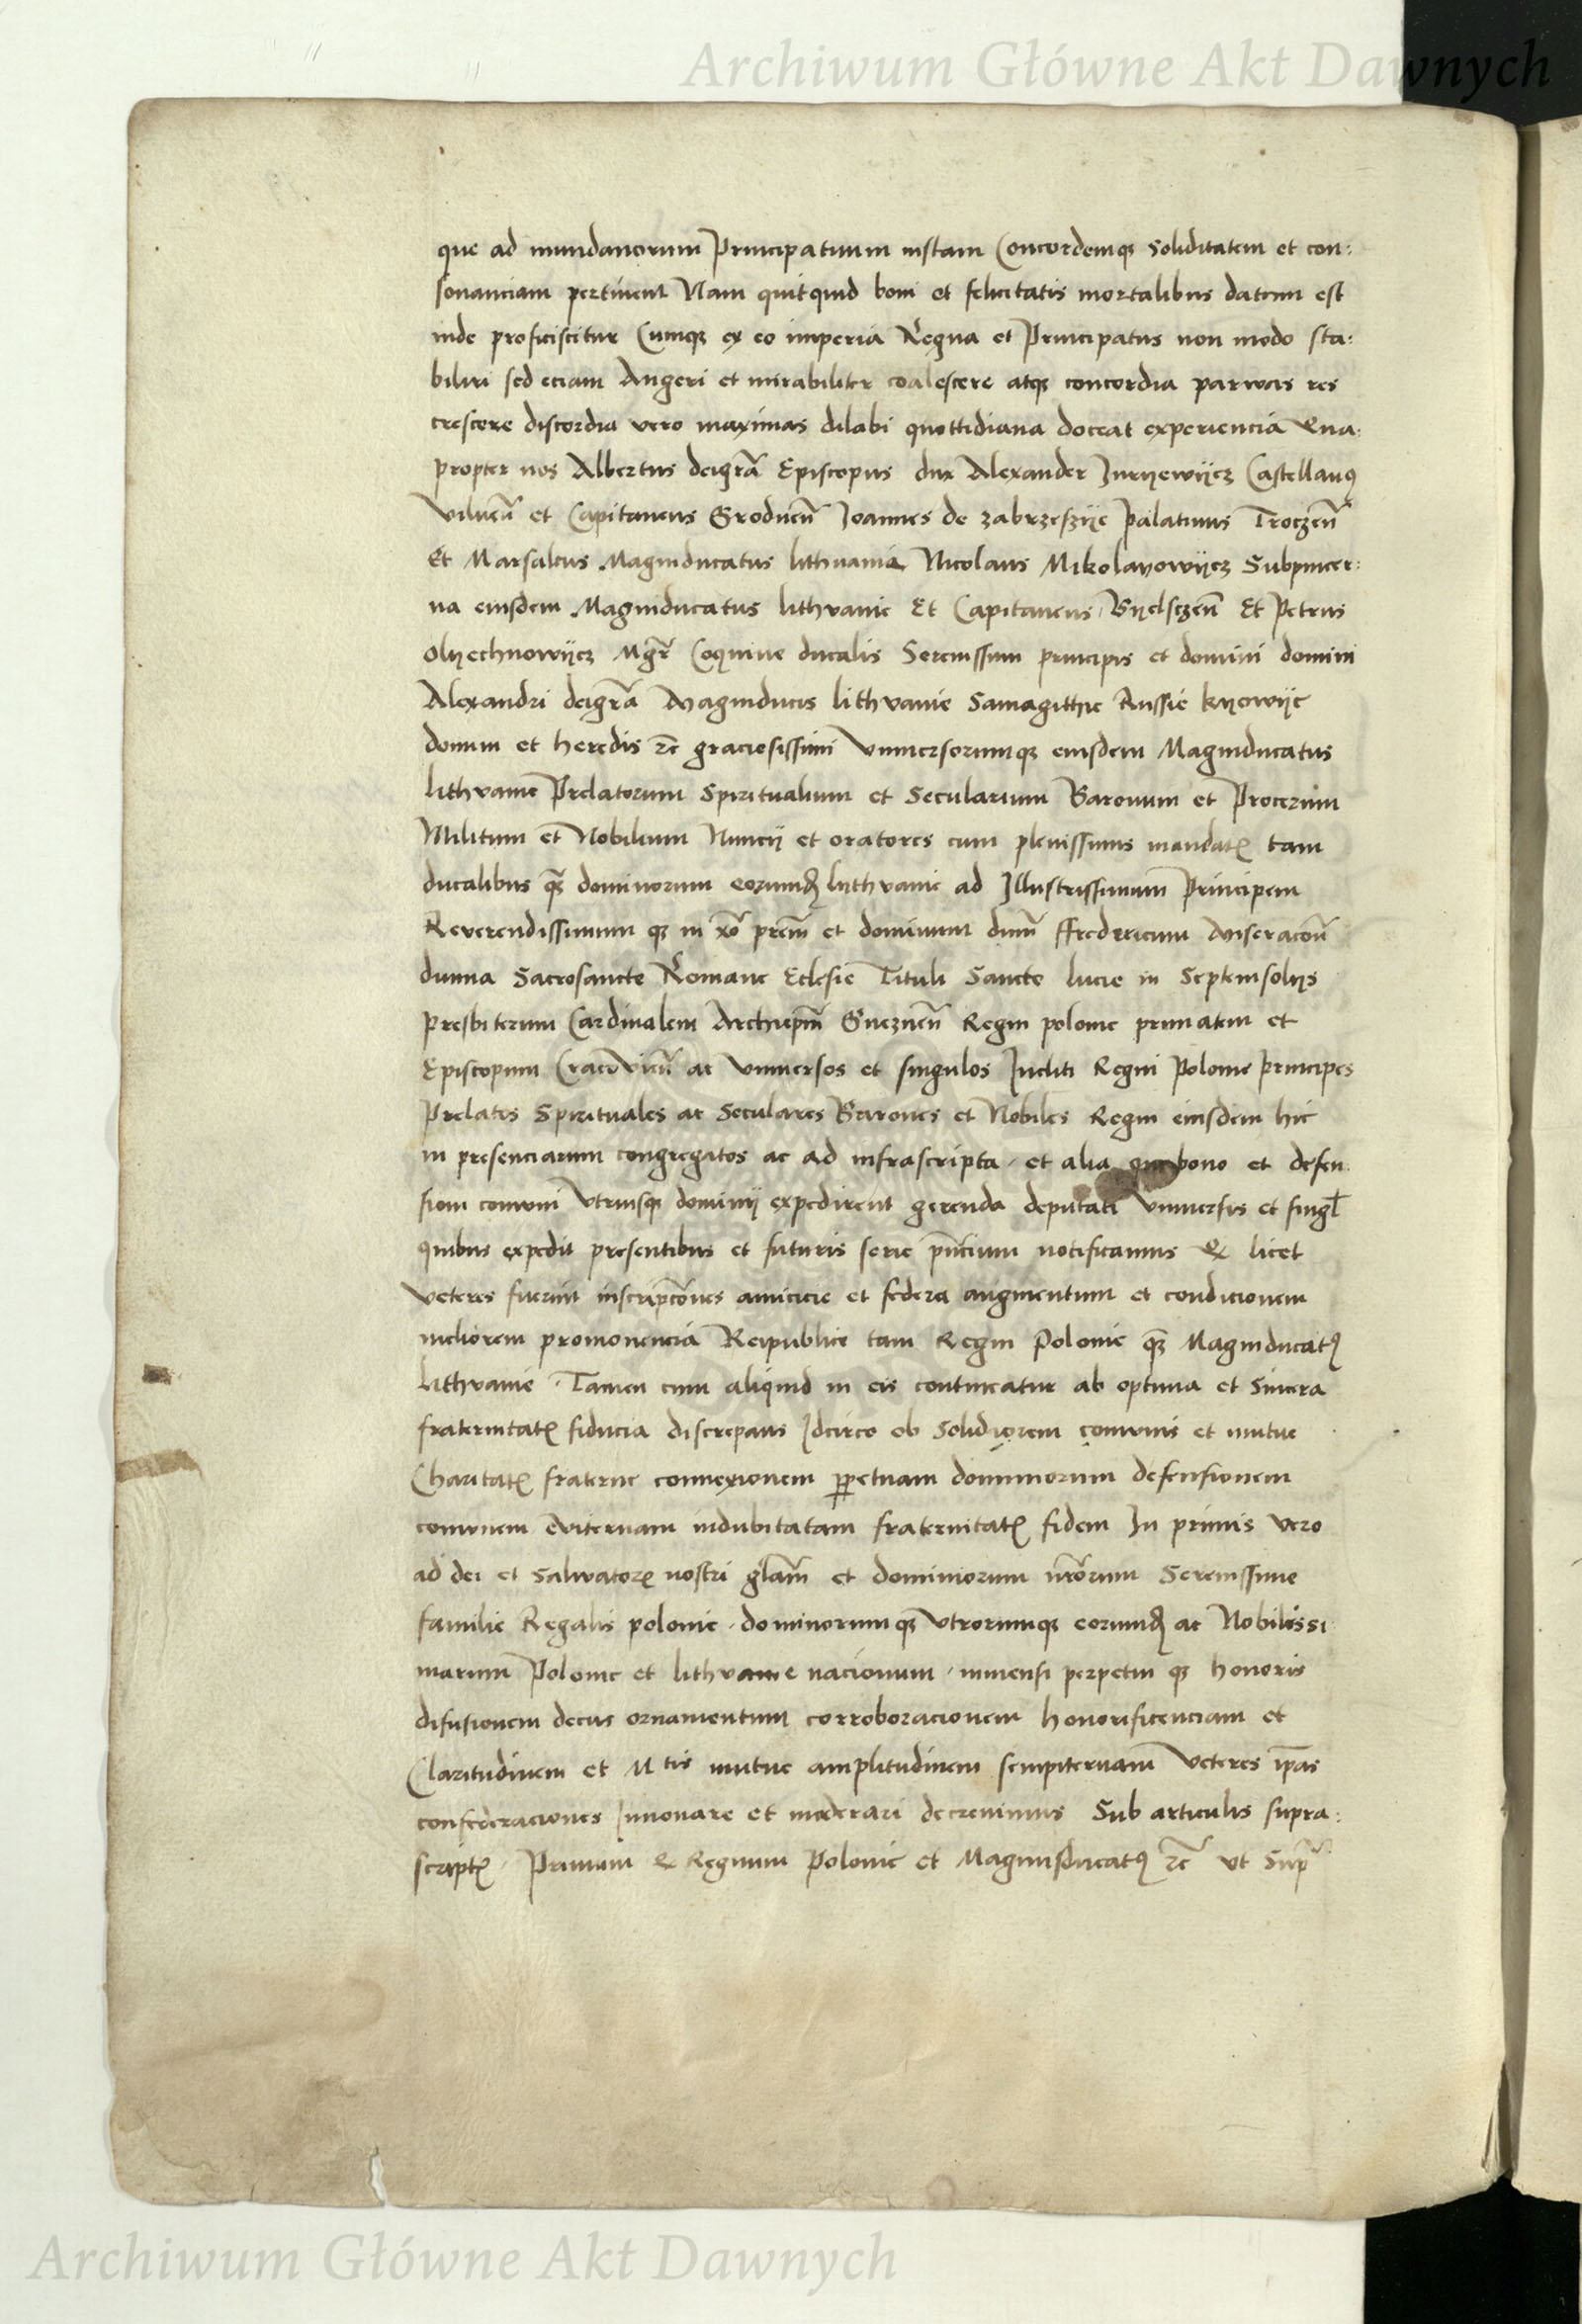 Archiwum Główne Akt Dawnych
que ad mundanorum Principatuum instam Concordemqꝫ soliditatem et con:
sonanciam pertinent Nam quitquid boni et felicitatis mortalibus datum est
inde proficiscitur Cumqꝫ ex eo imperia Regna et Principatus non modo sta:
biliri sed eciam Augeri et mirabiliter coalescere atqꝫ concordia parwas res
crescere discordia vero maximas dilabi quottidiana doceat experiencia Qua:
propter nos Albertus deigrā Episcopus dux Alexander Juryewijcz Castellanꝯ
Vilnen̄ et Capitaneus Grodnen̄ Joannes de zabrzeszije palatinus Troczen̄
Et Marsalcus Magniducatus lithuania Nicolaus Mikolayowijcz Subpincer:
na eiusdem Magniducatus lithvanie Et Capitaneus Byelsczen̄ Et Petrus
Olyechnowijcz Mgr̄ Coquine ducalis Serenissimi principis et domini domini
Alexandri deigrā Magniducis lithvanie Samagittie Russie kyowije
domini et heredis ꝛc̄ graciosissimi Vniuersorumqꝫ eiusdem Magniducatus
lithvanie Prelatorum Spiritualium et Secularium Baronum et Procerum
Militum et Nobilium Nuncij et oratores cum plenissimis mandatꝭ tam
ducalibus qꝫ̄ dominorum eorumꝺ lythvanie ad Illustrissimum Principem
Reverendissimum qꝫ in xō prem̄ et dominum dnm̄ ffredericum Miseracōn̄
diuina Sacrosancte Romane Eclesie Tituli Sancte lucie in Septemsolijs
Presbiterum Cardinalem Archiepm̄ Gneznen̄ Regni polonie primatem et
Episcopum Cracovien̄ ac Vniuersos et singulos Incliti Regni Polonie principes
Prelatos Spirituales ac Seculares Barones et Nobiles Regni eiusdem hic
in presenciarum congregatos ac ad infrascripta et alia que bono et defen
sioni comuni Vtriusqꝫ dominij expedirent gerenda deputati Vniuersis et singl̄
quibus expedit presentibus et futuris serie pn̄cium notificamus Qꝫ licet
veteres fuerint inscripcōnes amicicie et federa augmentum et condicionem
meliorem promonencia Reipublice tam Regni Polonie qꝫ̄ Magniducatꝯ
lithvanie Tamen cum aliquid in eis contineatur ab optima et Sincera
fraternitatꝭ fiducia discrepans Idcirco ob Solidiorem comunis et mutue
Charitatꝭ fraterne connexionem ꝑpetuam dominiorum defensionem
comunem Eviternam indubitatam fraternitatꝭ fidem In primis vero
ad dei et Salvatorꝭ nostri glām et dominiorum nrōrum Serenissime
familie Regalis polonie dominorumqꝫ Vtrorumqꝫ eorumꝺ ac Nobilissi
marum Polonie et lithvanie nacionum inmensi perpetui qꝫ honoris
difusionem decus ornamentum corroboracionem honorificenciam et
Claritudinem et Mtis mutue amplitudinem sempiternam Veteres ip̄as
confederaciones Innouare et moderari decreuimus Sub articulis supra:
scriptꝭ Primum Qꝫ Regnum Polonie et Magnusducatꝯ ꝛc̄ vt Supr̄
Archiwum Główne Akt Dawnych